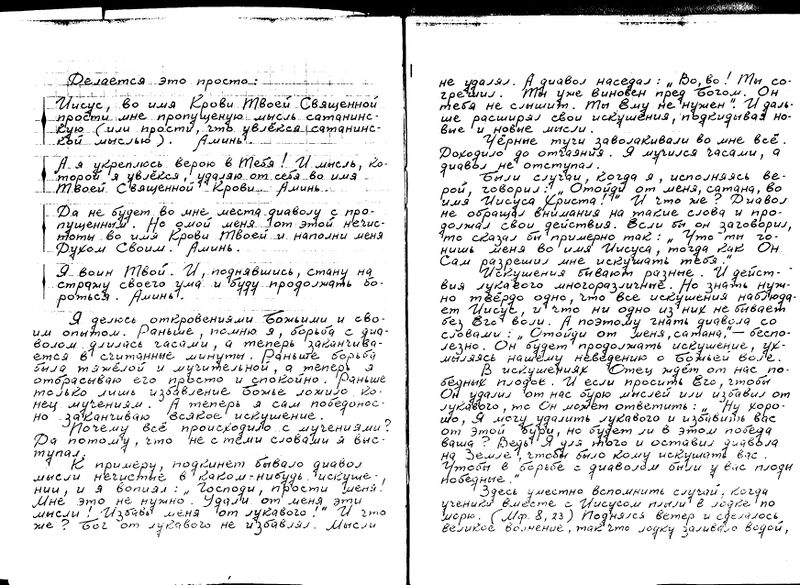 Делается это просто:
Иисус, во имя Крови Твоей Священной
прости мне пропущеную мысль сатанинс-
кую (или прости, что увлёкся сатанинс-
кой мыслью). Аминь.
А я укреплюсь верою в Тебя! И мысль, ко-
торой я увлёкся, удаляю от себя во имя
Твоей Священной Крови. Аминь.
Да не будет во мне места диаволу с про-
пущенным. Но омой меня от этой нечис-
тоты во имя Крови Твоей и наполни меня
Духом Своим. Аминь.
Я воин Твой. И, поднявшись, стану на
стражу своего ума и буду продолжать бо-
роться. Аминь.
Я делюсь откровениями Божьими и сво-
им опытом. Раньше, помню я, борьба с диа-
волом длилась часами, а теперь заканчива-
ется в считанные минуты. Раньше борьба
была тяжёлой и мучительной, а теперь я
отбрасываю его просто и спокойно. Раньше
только лишь избавление Божье ложило ко-
нец мучениям. А теперь я сам победонос-
но заканчиваю всякое искушение.
Почему всё происходило с мучениями?
Да потому, что не с теми словами я выс-
тупал.
К примеру, подкинет бывало диавол
мысли нечистые в каком-нибудь искуше-
нии, и я вопиял: „Господи, прости меня.
Мне это не нужно. Удали от меня эти
мысли! Избавь меня от лукавого!" И что
же? Бог от лукавого не избавлял. Мысли
не удалял. А диавол наседал: „Во, во! Ты со-
грешил. Ты уже виновен пред Богом. Он
тебя не слышит. Ты Ему не нужен". И даль-
ше расширял свои искушения, подкидывая но-
вые и новые мысли.
Чёрные тучи заволакивали во мне всё.
Доходило до отчаяния. Я мучился часами, а
диавол не отступал.
Были случаи, когда я, исполняясь ве-
рой, говорил: „Отойди от меня, сатана, во
имя Иисуса Христа!" И что же? Диавол
не обращал внимания на такие слова и про-
должал свои действия. Если бы он заговорил,
то сказал бы примерно так: „Что ты го-
нишь меня во имя Иисуса, тогда как Он
Сам разрешил мне искушать тебя."
Искушения бывают разные. И дейст-
вия лукавого многоразличные. Но знать нуж-
но твёрдо одно, что все искушения наблюда-
ет Иисус, и что ни одно из них не бывает
без Его воли. А поэтому гнать диавола со
словами: „Отойди от меня, сатана," – беспо-
лезно. Он будет продолжать искушение, ух-
мыляясь нашему неведению о Божьей воле.
В искушениях Отец ждёт от нас по-
бедных плодов. И если просить Его, чтобы
Он удалил от нас бурю мыслей или избавил от
лукавого, то Он может ответить: „Ну хоро-
шо, Я могу удалить лукавого и избавить вас
от этой бури, но будет ли в этом победа
ваша? Ведь Я для того и оставил диавола
на Земле, чтобы было кому искушать вас.
Чтобы в борьбе с диаволом были у вас плоды
победные."
Здесь уместно вспомнить случай, когда
ученики вместе с Иисусом плыли в лодке по
морю. (Мф. 8, 23) Поднялся ветер и сделалось
великое волнение, так что лодку заливало водой,